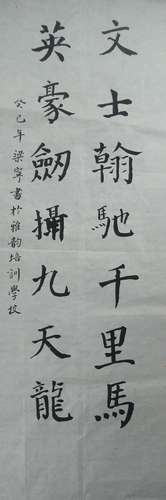 文士翰馳千里馬
英豪劒攝九天龍
癸巳年梁寧書於雅韵培训學校